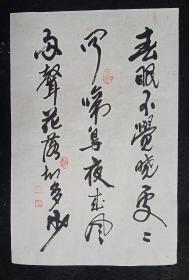 春眠不覺曉處〻
聞啼鳥夜來風
雨聲花落知多少